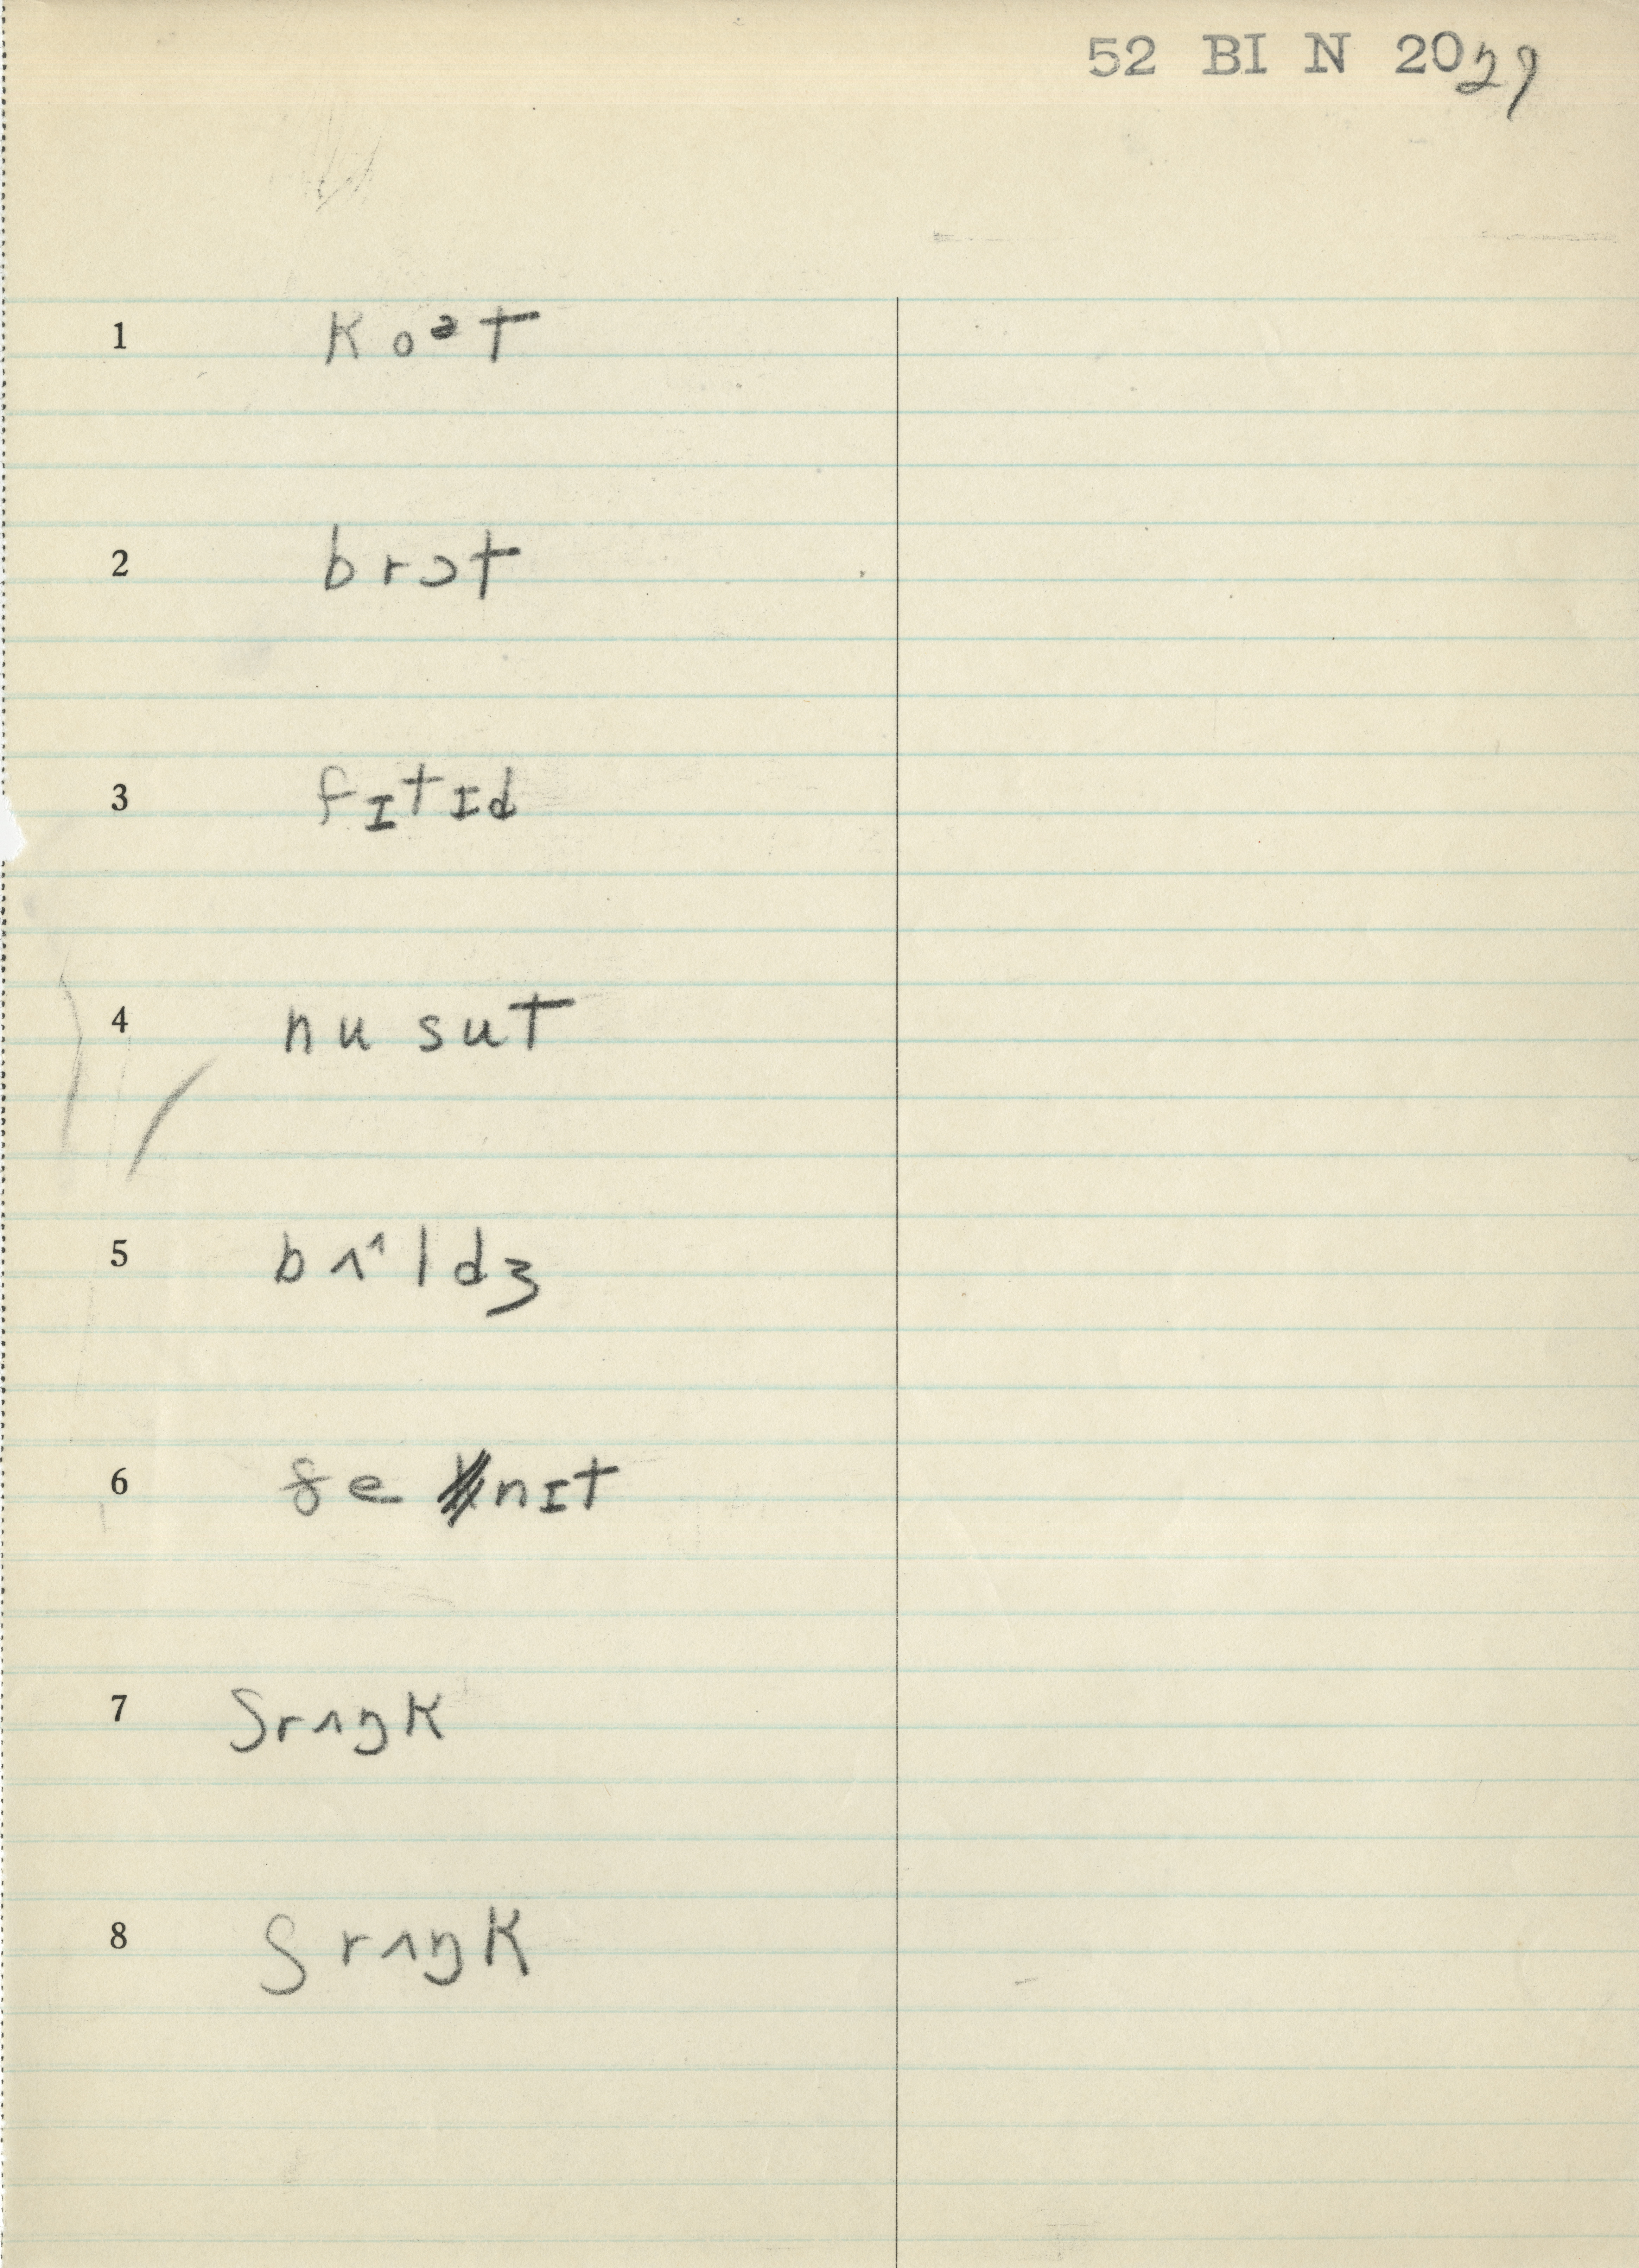 52 BI N 2029
1 koᵊt
2 brɔt
3 fɪtɪd
4 nu sut
5 bʌ^ldʒ
6 ɣe nɪt
7 ʃrʌŋk
8 ʃrʌŋk